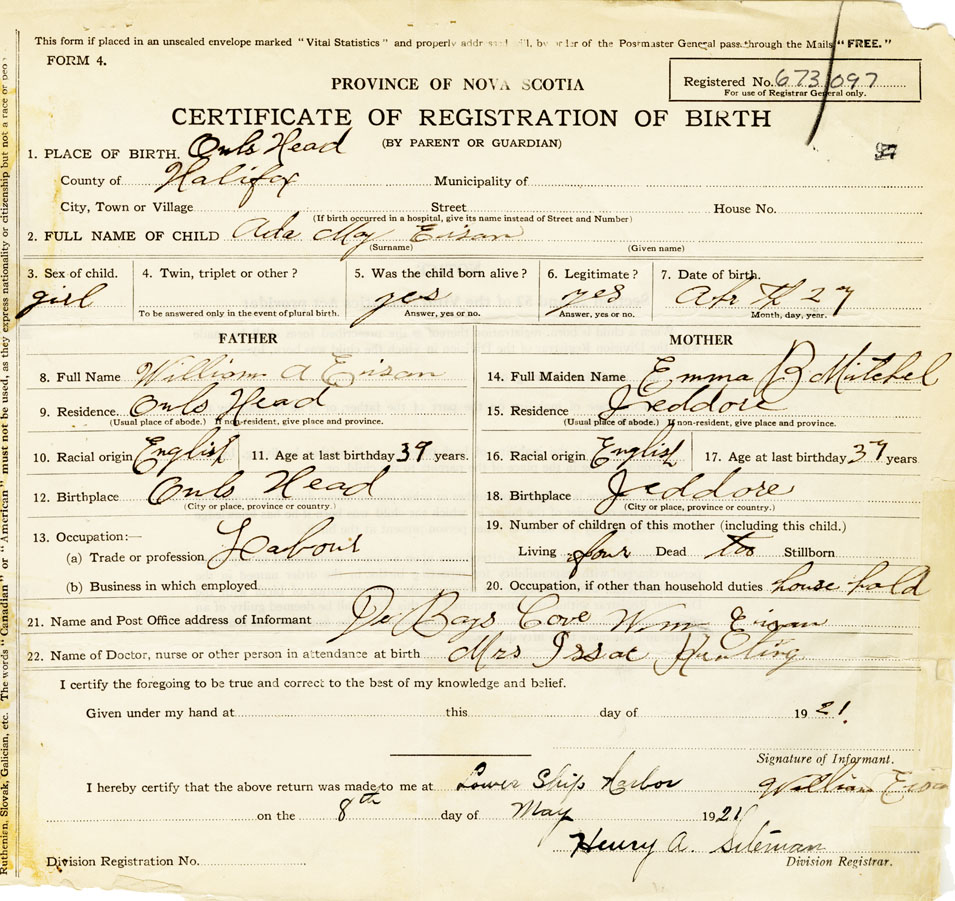 This form if placed in an unsealed envelope marked "Vital Statistics" and properly addressed will, by order of the Postmaster General pass through the Mails "FREE."
FORM 4.
PROVINCE OF NOVA SCOTIA
Registered No. 673097
For use of Registrar General only.
CERTIFICATE OF REGISTRATION OF BIRTH
(BY PARENT OR GUARDIAN)
1. PLACE OF BIRTH. Owls Head
County of Halifax Municipality of
City, Town or Village Street House No.
(If birth occurred in a hospital, give its name instead of Street and Number)
2. FULL NAME OF CHILD Ada May Eisan
(Surname) (Given name)
3. Sex of child. 4. Twin, triplet or other? 5. Was the child born alive? 6. Legitimate? 7. Date of birth.
girl yes yes 27
To be answered only in the event of plural birth. Answer, yes or no. Answer, yes or no. Month, day, year.
FATHER
8. Full Name William A Eisan
9. Residence Owls Head
(Usual place of abode.) If non-resident, give place and province.
10. Racial origin English 11. Age at last birthday 39 years.
12. Birthplace Owls Head
(City or place, province or country.)
13. Occupation:—
(a) Trade or profession Labour
(b) Business in which employed
MOTHER
14. Full Maiden Name Emma B Mitchel
15. Residence Jeddore
(Usual place of abode.) If non-resident, give place and province.
16. Racial origin English 17. Age at last birthday 37 years
18. Birthplace Jeddore
(City or place, province or country.)
19. Number of children of this mother (including this child.)
Living four Dead too Stillborn
20. Occupation, if other than household duties house hold
21. Name and Post Office address of Informant De Bays Cove Wm Eisan
22. Name of Doctor, nurse or other person in attendance at birth Mrs Issac
I certify the foregoing to be true and correct to the best of my knowledge and belief.
Given under my hand at this day of 1921.
Signature of Informant.
I hereby certify that the above return was made to me at Lower Ship Harbor William
on the 8th day of May 1921
Henry A. Siteman
Division Registration No. Division Registrar.
Ruthenian, Slovak, Galician, etc. The words "Canadian" or "American" must not be used, as they express nationality or citizenship but not a race or